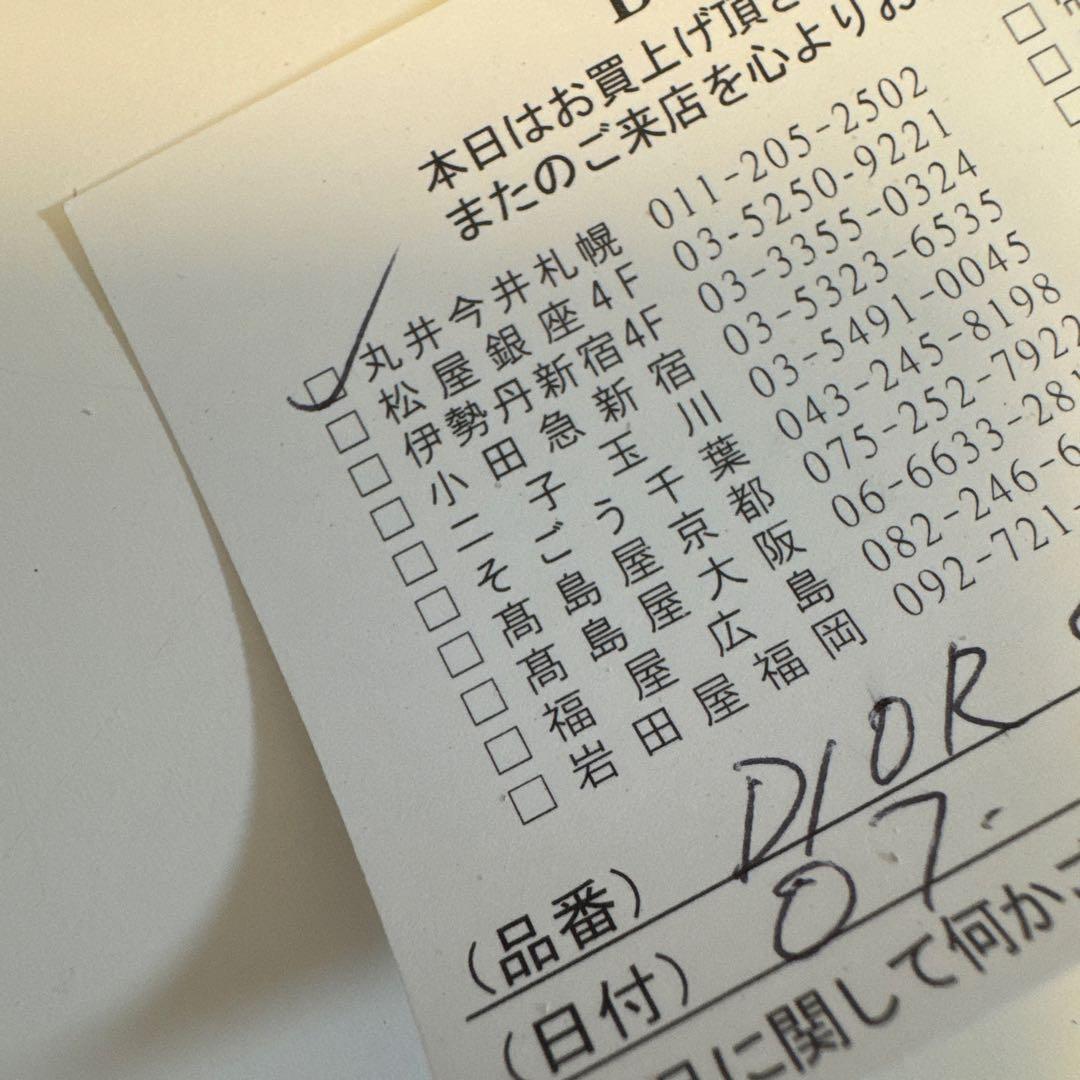 本日はお買上げ頂き
またのご来店を心よりお
丸井今井札幌 011-205-2502
□ 松屋銀座4F 03-5250-9221
□ 伊勢丹新宿4F 03-3355-0324
□ 小田急新宿 03-5323-6535
□ 二子玉川 03-5491-0045
□ そごう千葉 043-245-8198
□ 髙島屋京都 075-252-7922
□ 髙島屋大阪 06-6633-281
□ 福屋広島 082-246-6
□ 岩田屋福岡 092-721-
(品番) DIOR
(日付) 07.
に関して何か